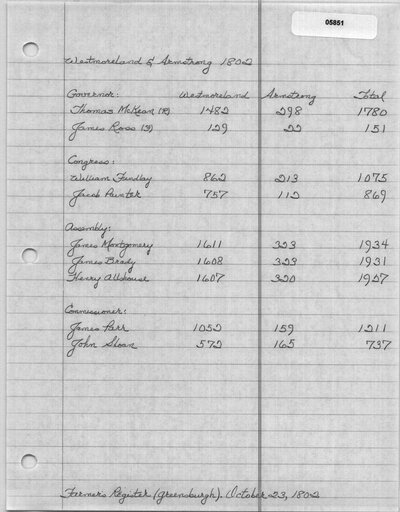 05851
Westmoreland & Armstrong 1802
Governor: Westmoreland Armstrong Total
Thomas McKean (R) 1482 298 1780
James Ross (F) 129 22 151
Congress:
William Findlay 862 213 1075
Jacob Painter 757 112 869
Assembly:
James Montgomery 1611 323 1934
James Brady 1608 323 1931
Henry Allshouse 1607 320 1927
Commissioner:
James Parr 1052 159 1211
John Sloan 572 165 737
Farmers Register (Greensburgh). October 23, 1802